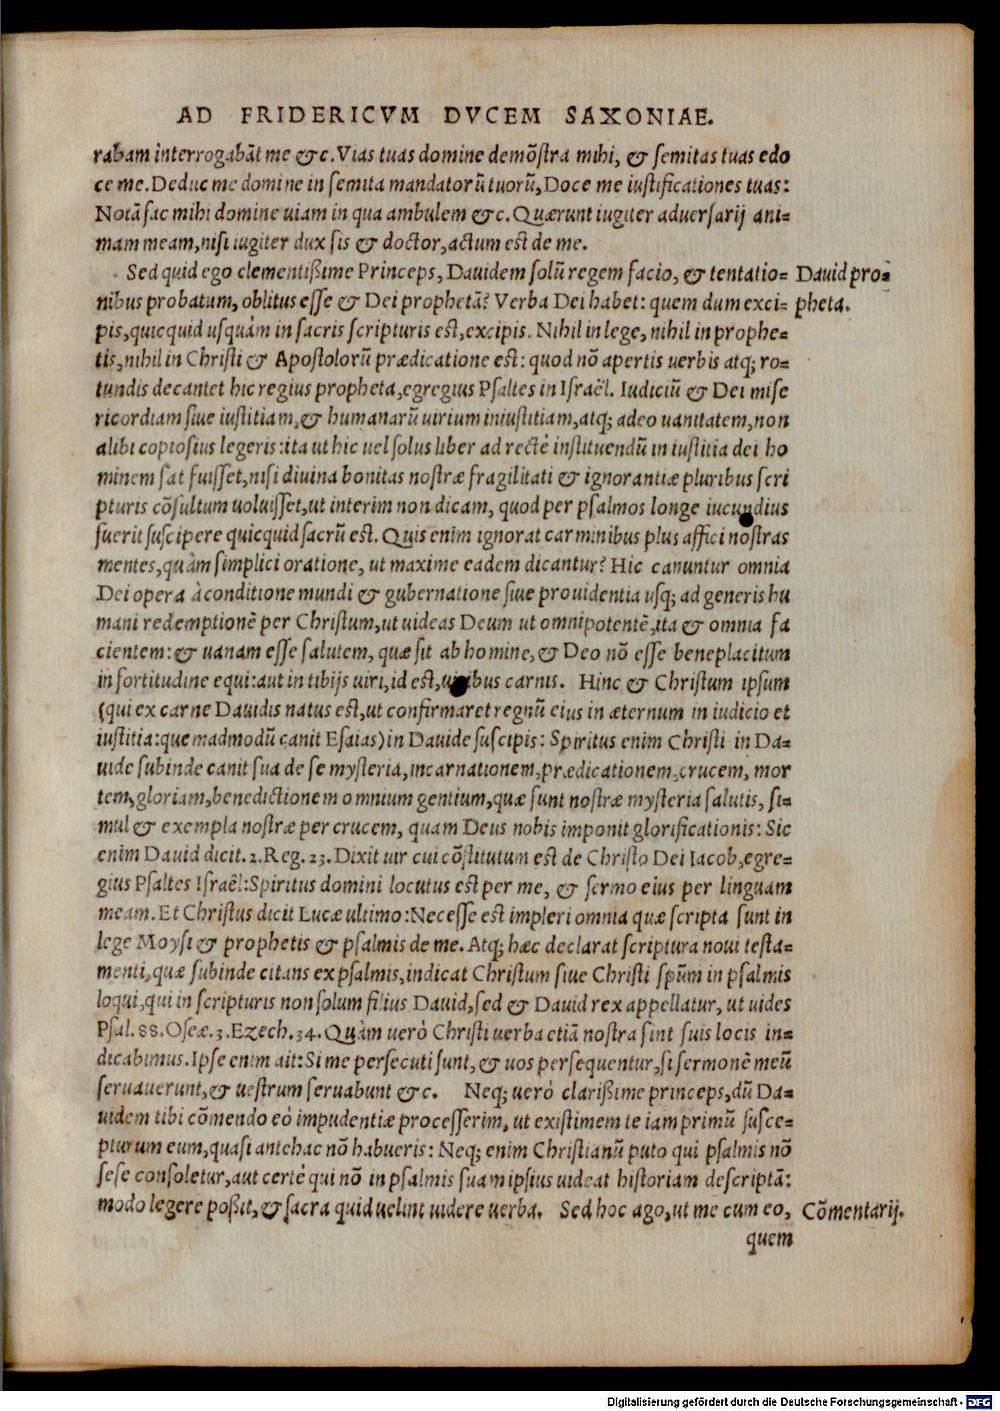 AD FRIDERICVM DVCEM SAXONIAE.
rabam interrogabãt me &c. Vias tuas domine demõstra mihi, & semitas tuas edo
ce me. Deduc me domine in semita mandatorũ tuorũ, Doce me iustificationes tuas:
Notã fac mihi domine uiam in qua ambulem &c. Quærunt iugiter aduersarij ani=
mam meam, nisi iugiter dux sis & doctor, actum est de me.
Sed quid ego clementißime Princeps, Dauidem solũ regem facio, & tentatio= Dauid pro=
nibus probatum, oblitus esse & Dei prophetã? Verba Dei habet: quem dum exci= pheta.
pis, quicquid usquàm in sacris scripturis est, excipis. Nihil in lege, nihil in prophe=
tis, nihil in Christi & Apostolorũ prædicatione est: quod nõ apertis uerbis atq; ro=
tundis decantet hic regius propheta, egregius Psaltes in Israël. Iudiciũ & Dei mise
ricordiam siue iustitiam, & humanarũ uirium iniustitiam, atq; adeo uanitatem, non
alibi copiosius legeris: ita ut hic uel solus liber ad rectè instituendũ in iustitia dei ho
minem sat fuisset, nisi diuina bonitas nostræ fragilitati & ignorantiæ pluribus scri
pturis cõsultum uoluisset, ut interim non dicam, quod per psalmos longe iucundius
fuerit suscipere quicquid sacrũ est. Quis enim ignorat carminibus plus affici nostras
mentes, quàm simplici oratione, ut maxime eadem dicantur? Hic canuntur omnia
Dei opera à conditione mundi & gubernatione siue prouidentia usq; ad generis hu
mani redemptionẽ per Christum, ut uideas Deum ut omnipotentẽ, ita & omnia fa
cientem: & uanam esse salutem, quæ sit ab homine, & Deo nõ esse beneplacitum
in fortitudine equi: aut in tibijs uiri, id est, uiribus carnis. Hinc & Christum ipsum
(qui ex carne Dauidis natus est, ut confirmaret regnũ eius in æternum in iudicio et
iustitia: quemadmodũ canit Esaias) in Dauide suscipis: Spiritus enim Christi in Da=
uide subinde canit sua de se mysteria, incarnationem, prædicationem, crucem, mor
tem, gloriam, benedictionem omnium gentium, quæ sunt nostræ mysteria salutis, si=
mul & exempla nostræ per crucem, quam Deus nobis imponit glorificationis: Sic
enim Dauid dicit. 2. Reg. 23. Dixit uir cui cõstitutum est de Christo Dei Iacob, egre=
gius Psaltes Israël: Spiritus domini locutus est per me, & sermo eius per linguam
meam. Et Christus dicit Lucæ ultimo: Necesse est impleri omnia quæ scripta sunt in
lege Moysi & prophetis & psalmis de me. Atq; hæc declarat scriptura noui testa=
menti, quæ subinde citans ex psalmis, indicat Christum siue Christi spũm in psalmis
loqui, qui in scripturis non solum filius Dauid, sed & Dauid rex appellatur, ut uides
Psal. 88. Oseæ. 3. Ezech. 34. Quàm uerò Christi uerba etiã nostra sint suis locis in=
dicabimus. Ipse enim ait: Si me persecuti sunt, & uos persequentur, si sermonẽ meũ
seruauerunt, & uestrum seruabunt &c. Neq; uerò clarißime princeps, dũ Da=
uidem tibi cõmendo eò impudentiæ processerim, ut existimem te iam primũ susce=
pturum eum, quasi antehac nõ habueris: Neq; enim Christianũ puto qui psalmis nõ
sese consoletur, aut certè qui nõ in psalmis suam ipsius uideat historiam descriptã:
modo legere poßit, & sacra quid uelint uidere uerba. Sed hoc ago, ut me cum eo, Cõmentarij.
quem
Digitalisierung gefördert durch die Deutsche Forschungsgemeinschaft - DFG